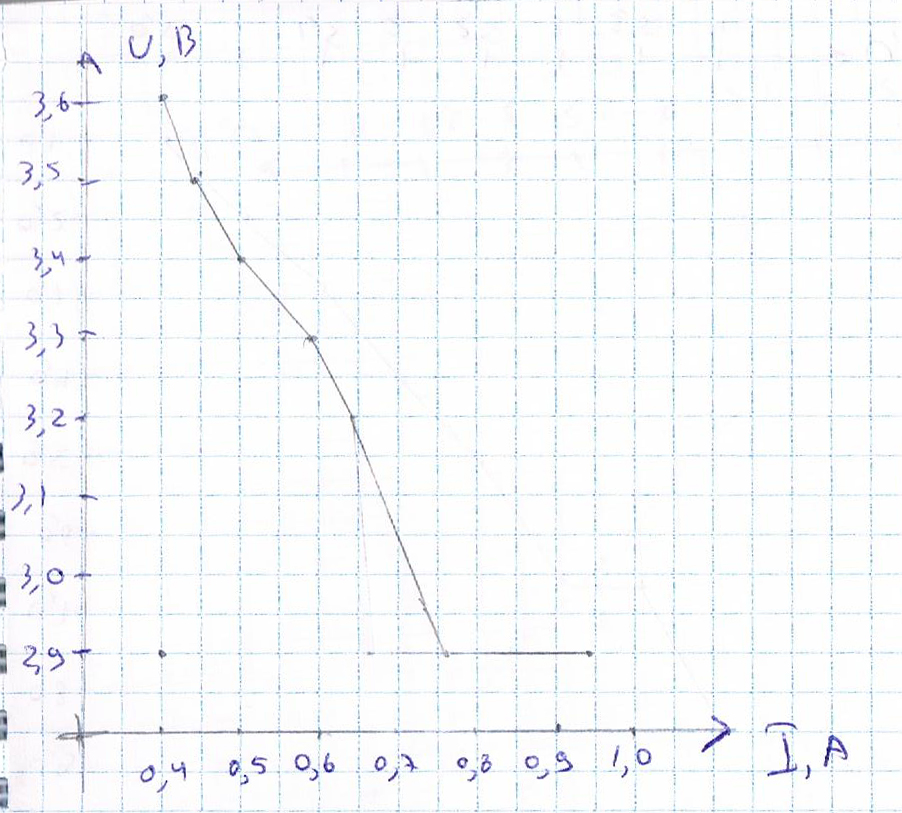 U, B
3,6
3,5
3,4
3,3
3,2
3,1
3,0
2,9
0,4 0,5 0,6 0,7 0,8 0,9 1,0 I, A